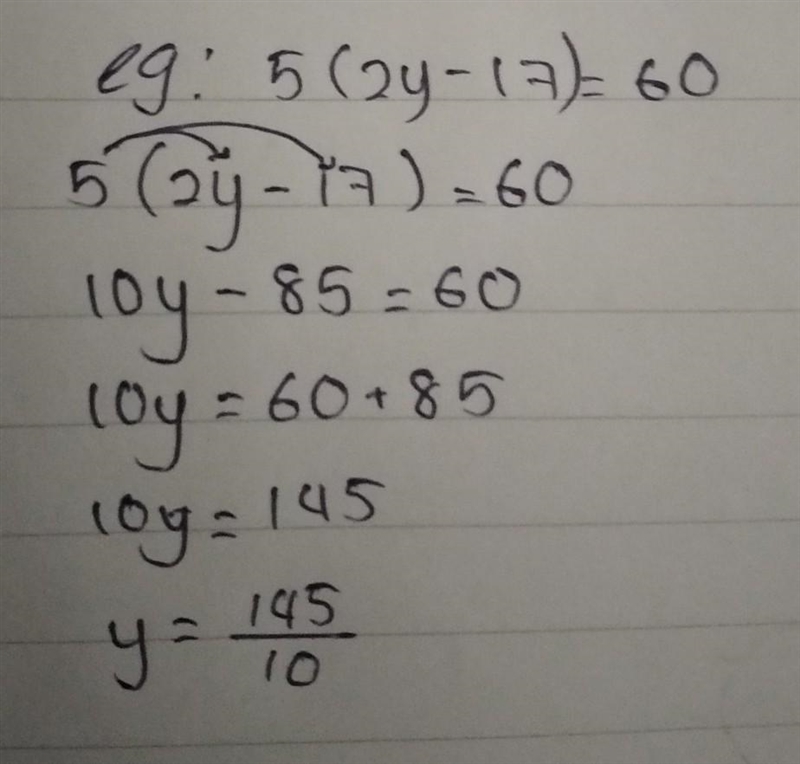 eg: 5(2y-17)=60
5(2y-17)=60
10y-85=60
10y=60+85
10y=145
y=145/10